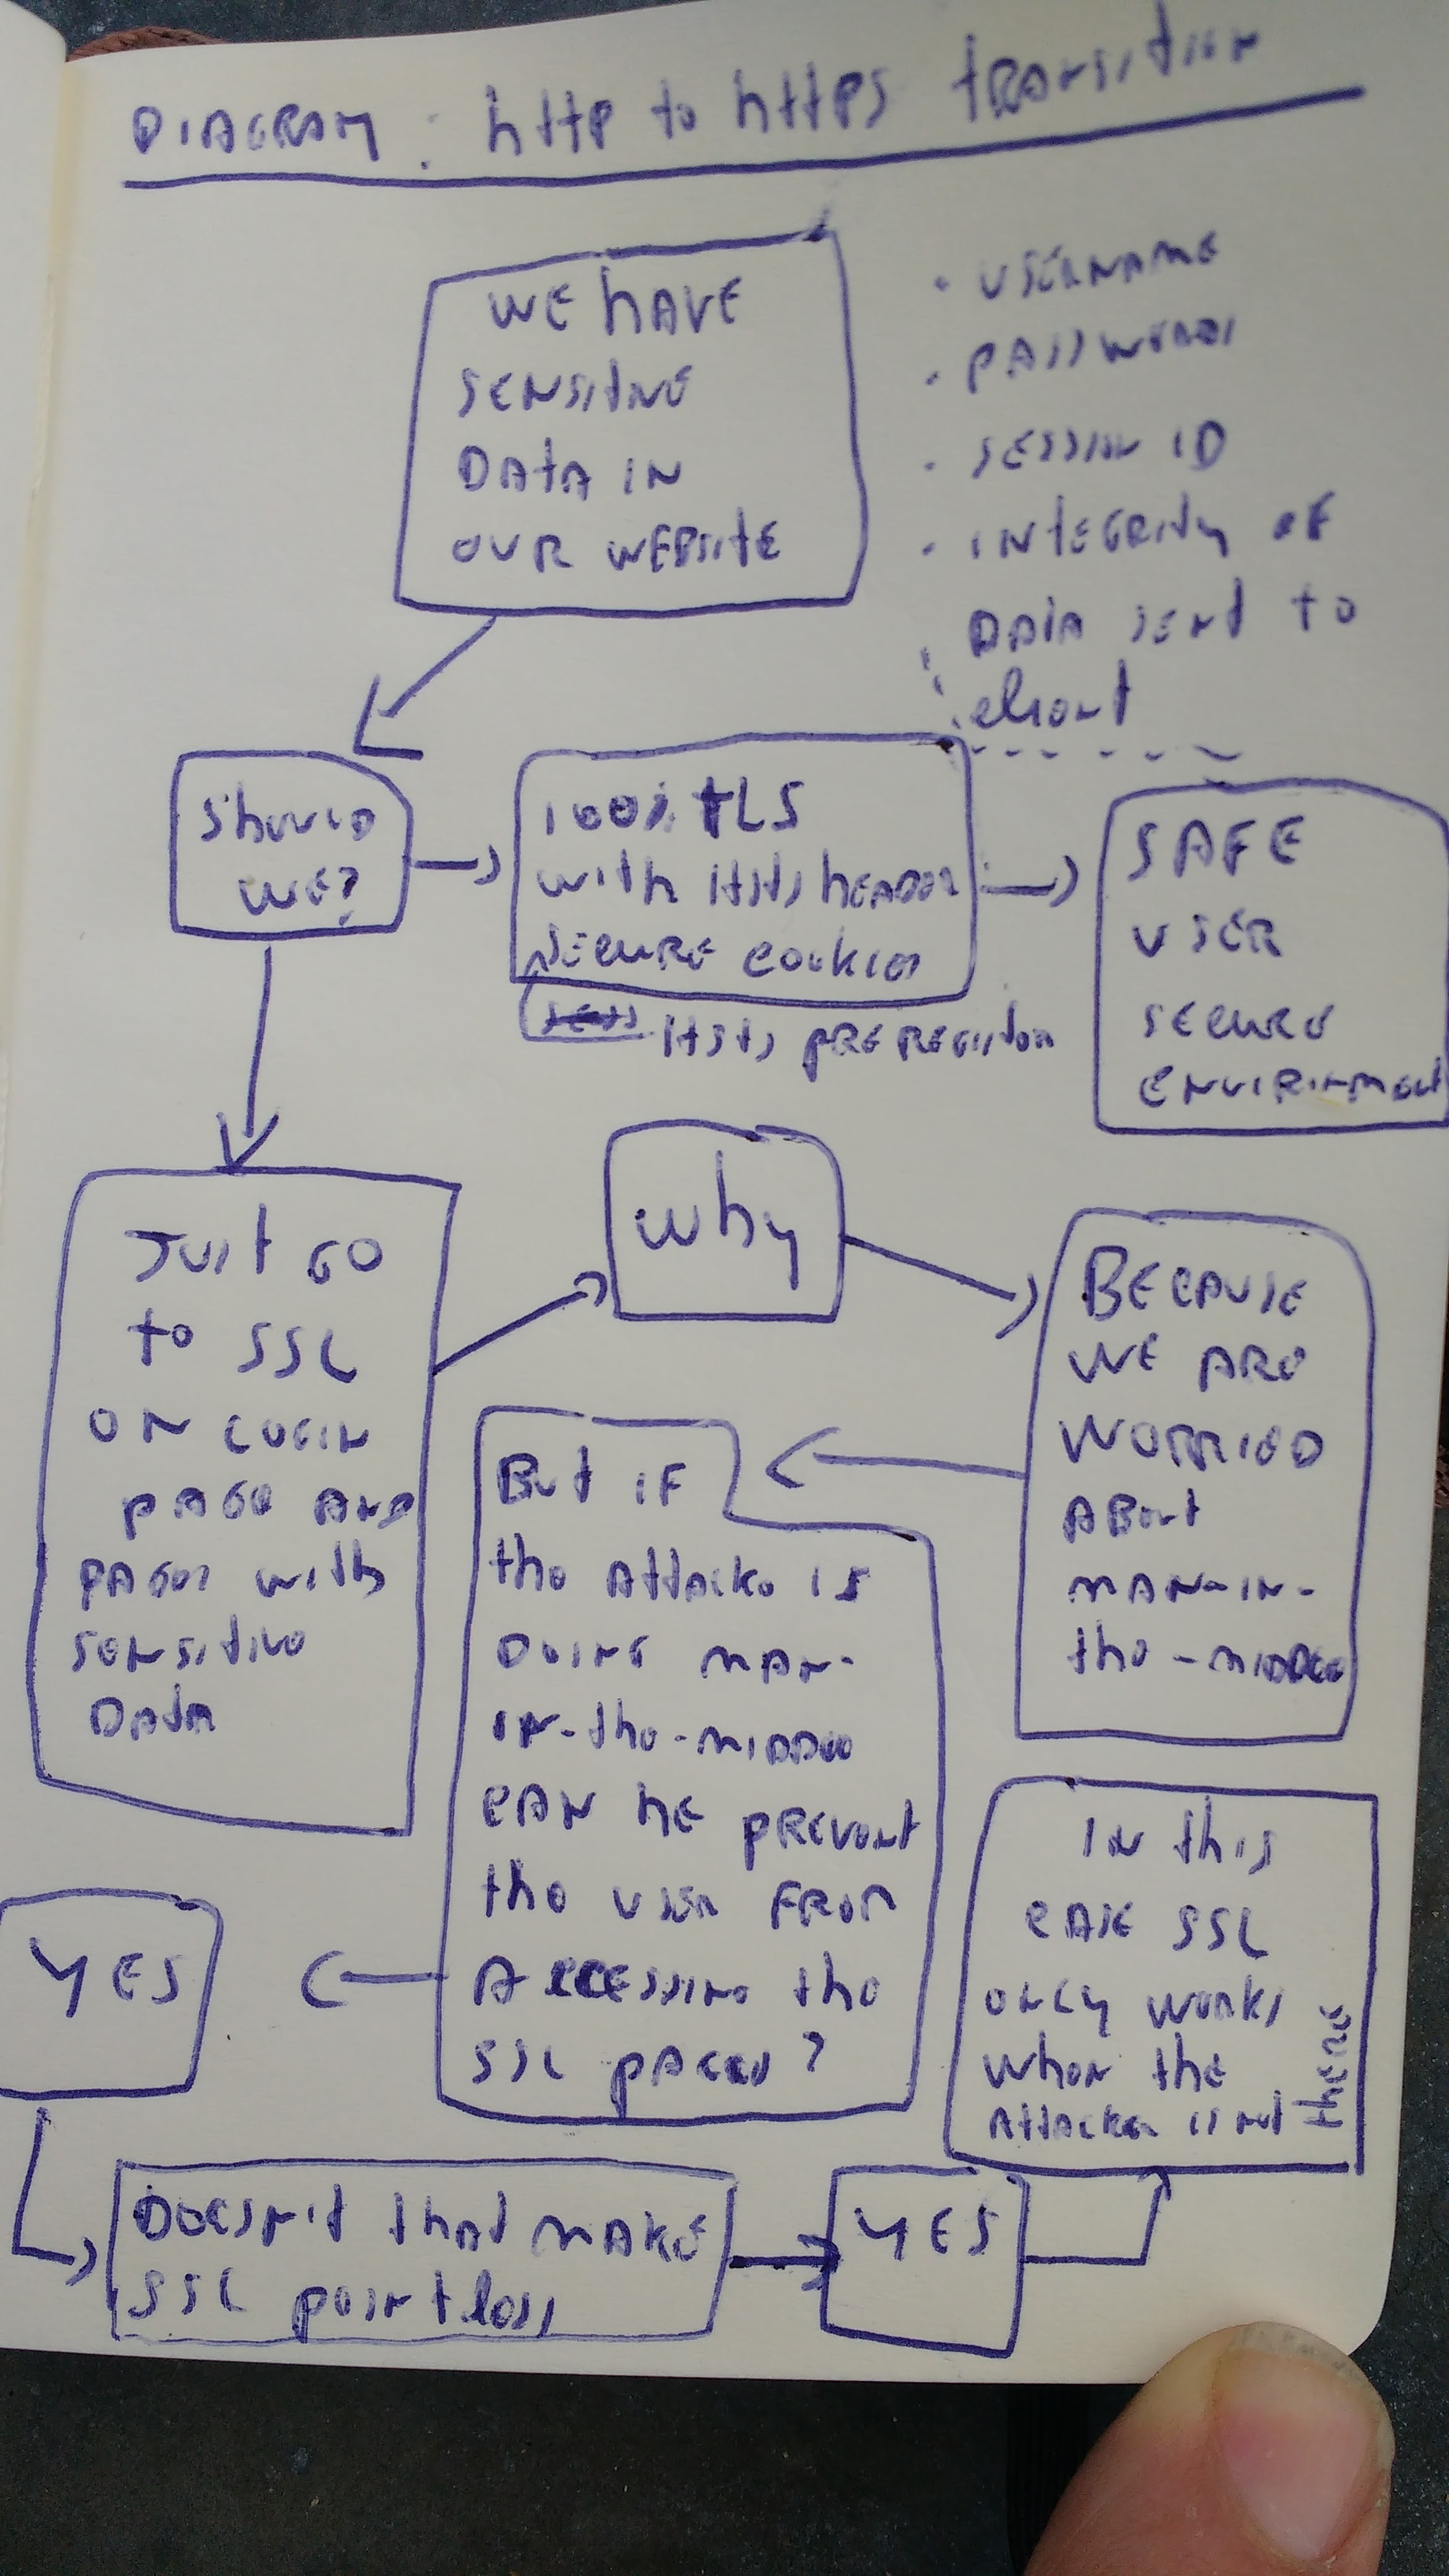 DIAGRAM : http to https transition
WE HAVE
SENSITIVE
DATA IN
OUR WEBSITE
• USERNAME
• PASSWORD
• SESSION ID
• INTEGRITY OF
DATA SENT to
client
Should
WE?
100% TLS
with HSTS HEADER
SECURE cookies
HSTS PREREGISTER
SAFE
USER
SECURE
ENVIRONMENT
JUST GO
to SSL
ON LOGIN
PAGE AND
PAGES with
SENSITIVE
DATA
Why
BECAUSE
WE ARE
WORRIED
ABOUT
MAN-IN-
the-MIDDLE
BUT IF
the Attacker IS
DOING MAN-
IN-the-MIDDLE
CAN HE PREVENT
the USER FROM
ACCESSING the
SSL PAGES?
YES
DOESN't that MAKE
SSL pointless
YES
IN this
CASE SSL
ONLY WORKS
When the
Attacker is not
there